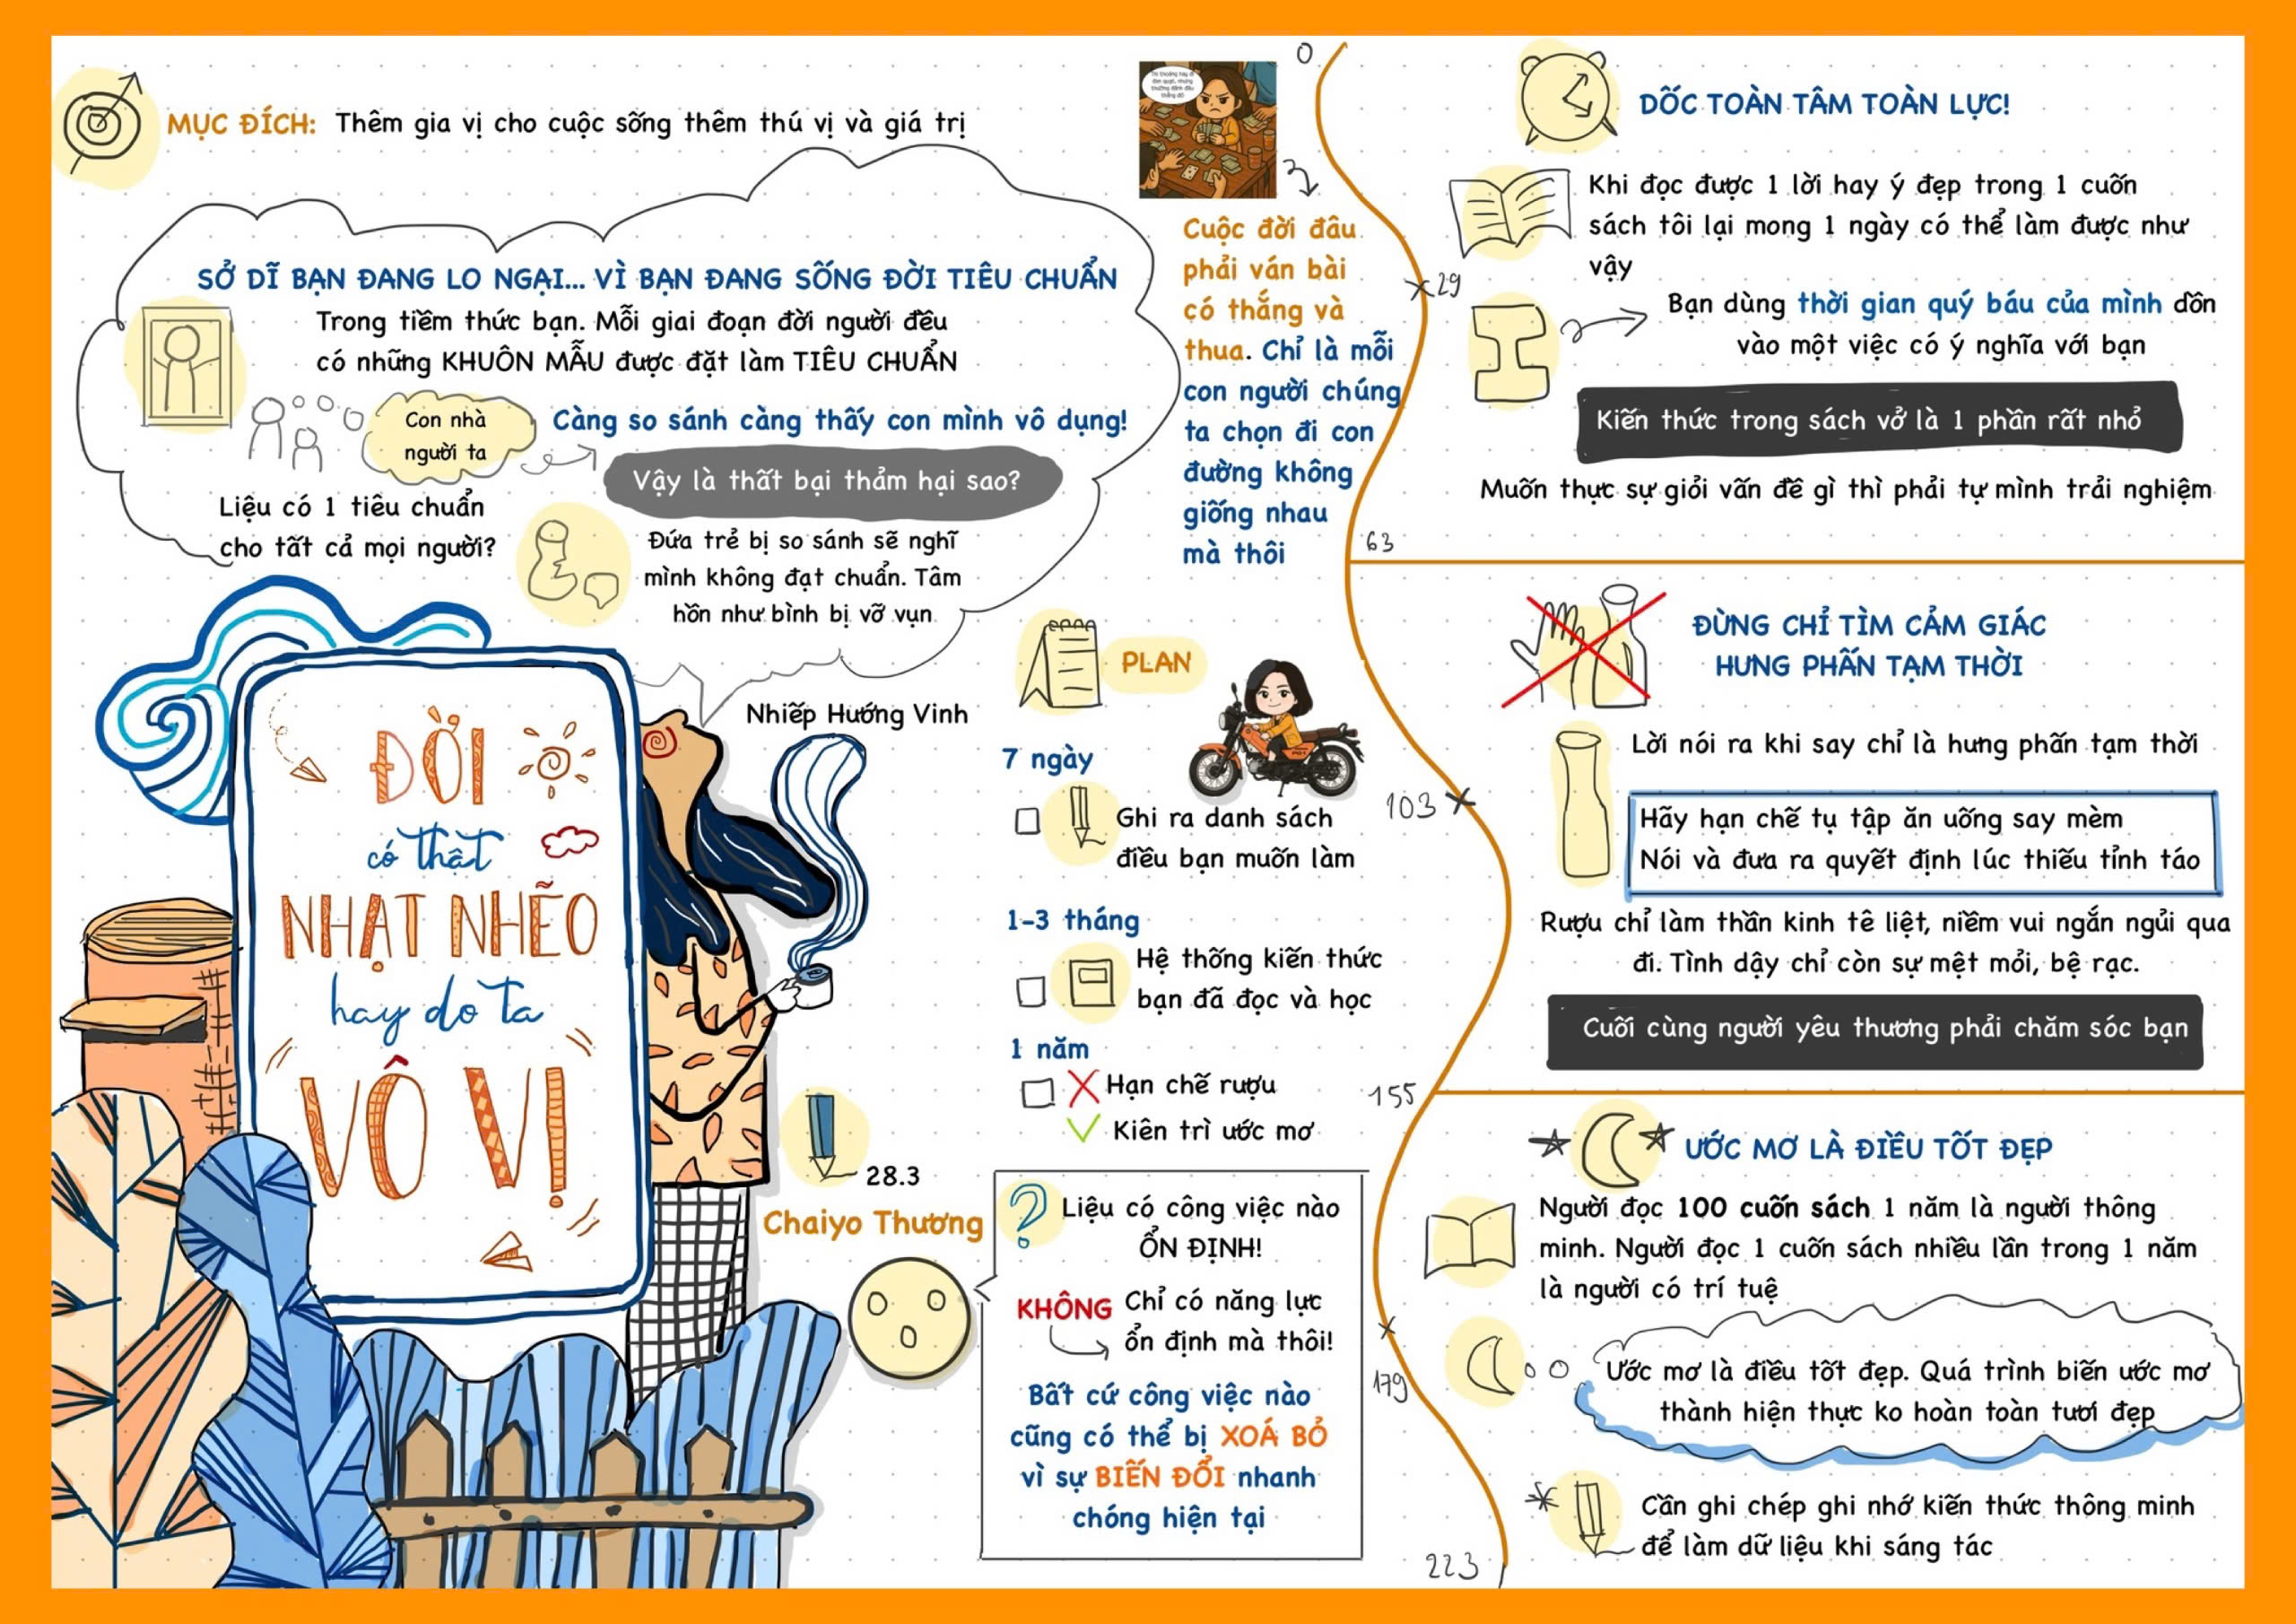 MỤC ĐÍCH: Thêm gia vị cho cuộc sống thêm thú vị và giá trị
SỞ DĨ BẠN ĐANG LO NGẠI... VÌ BẠN ĐANG SỐNG ĐỜI TIÊU CHUẨN
Trong tiềm thức bạn. Mỗi giai đoạn đời người đều
có những KHUÔN MẪU được đặt làm TIÊU CHUẨN
Con nhà
người ta
Càng so sánh càng thấy con mình vô dụng!
Vậy là thất bại thảm hại sao?
Liệu có 1 tiêu chuẩn
cho tất cả mọi người?
Đứa trẻ bị so sánh sẽ nghĩ
mình không đạt chuẩn. Tâm
hồn như bình bị vỡ vụn
Nhiếp Hướng Vinh
ĐỜI
có thật
NHẠT NHẼO
hay do ta
VÔ VỊ
28.3
Chaiyo Thương
Cuộc đời đâu
phải ván bài
có thắng và
thua. Chỉ là mỗi
con người chúng
ta chọn đi con
đường không
giống nhau
mà thôi
PLAN
7 ngày
Ghi ra danh sách
điều bạn muốn làm
1-3 tháng
Hệ thống kiến thức
bạn đã đọc và học
1 năm
Hạn chế rượu
Kiên trì ước mơ
? Liệu có công việc nào
ỔN ĐỊNH!
KHÔNG Chỉ có năng lực
ổn định mà thôi!
Bất cứ công việc nào
cũng có thể bị XOÁ BỎ
vì sự BIẾN ĐỔI nhanh
chóng hiện tại
0
29
63
103
155
179
223
DỐC TOÀN TÂM TOÀN LỰC!
Khi đọc được 1 lời hay ý đẹp trong 1 cuốn
sách tôi lại mong 1 ngày có thể làm được như
vậy
Bạn dùng thời gian quý báu của mình dồn
vào một việc có ý nghĩa với bạn
Kiến thức trong sách vở là 1 phần rất nhỏ
Muốn thực sự giỏi vấn đề gì thì phải tự mình trải nghiệm
ĐỪNG CHỈ TÌM CẢM GIÁC
HƯNG PHẤN TẠM THỜI
Lời nói ra khi say chỉ là hưng phấn tạm thời
Hãy hạn chế tụ tập ăn uống say mèm
Nói và đưa ra quyết định lúc thiếu tỉnh táo
Rượu chỉ làm thần kinh tê liệt, niềm vui ngắn ngủi qua
đi. Tình dậy chỉ còn sự mệt mỏi, bệ rạc.
Cuối cùng người yêu thương phải chăm sóc bạn
ƯỚC MƠ LÀ ĐIỀU TỐT ĐẸP
Người đọc 100 cuốn sách 1 năm là người thông
minh. Người đọc 1 cuốn sách nhiều lần trong 1 năm
là người có trí tuệ
Ước mơ là điều tốt đẹp. Quá trình biến ước mơ
thành hiện thực ko hoàn toàn tươi đẹp
Cần ghi chép ghi nhớ kiến thức thông minh
để làm dữ liệu khi sáng tác